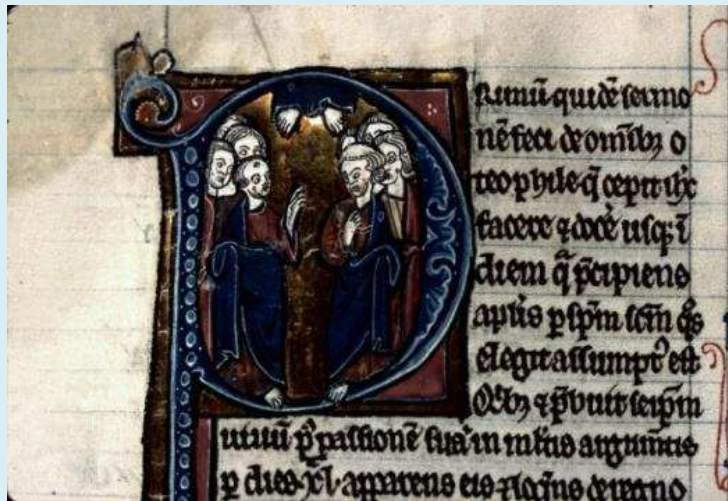 Primū quidē sermo
nē feci de omībꝫ o
teophile q̄ cepit ih̄c
facere ⁊ docē usqꝫ ī
diem q̄ p̄cipiens
apl̄is ꝑ sp̄m sc̄m q̄s
elegit assumptꝰ est
Qͥbꝫ ⁊ p̄buit seip̄m
uiuū p̄ passionē suā in ml̄tis argum̄tis
ꝑ dies .xl. apparens eis ⁊ loq̄ns de regno